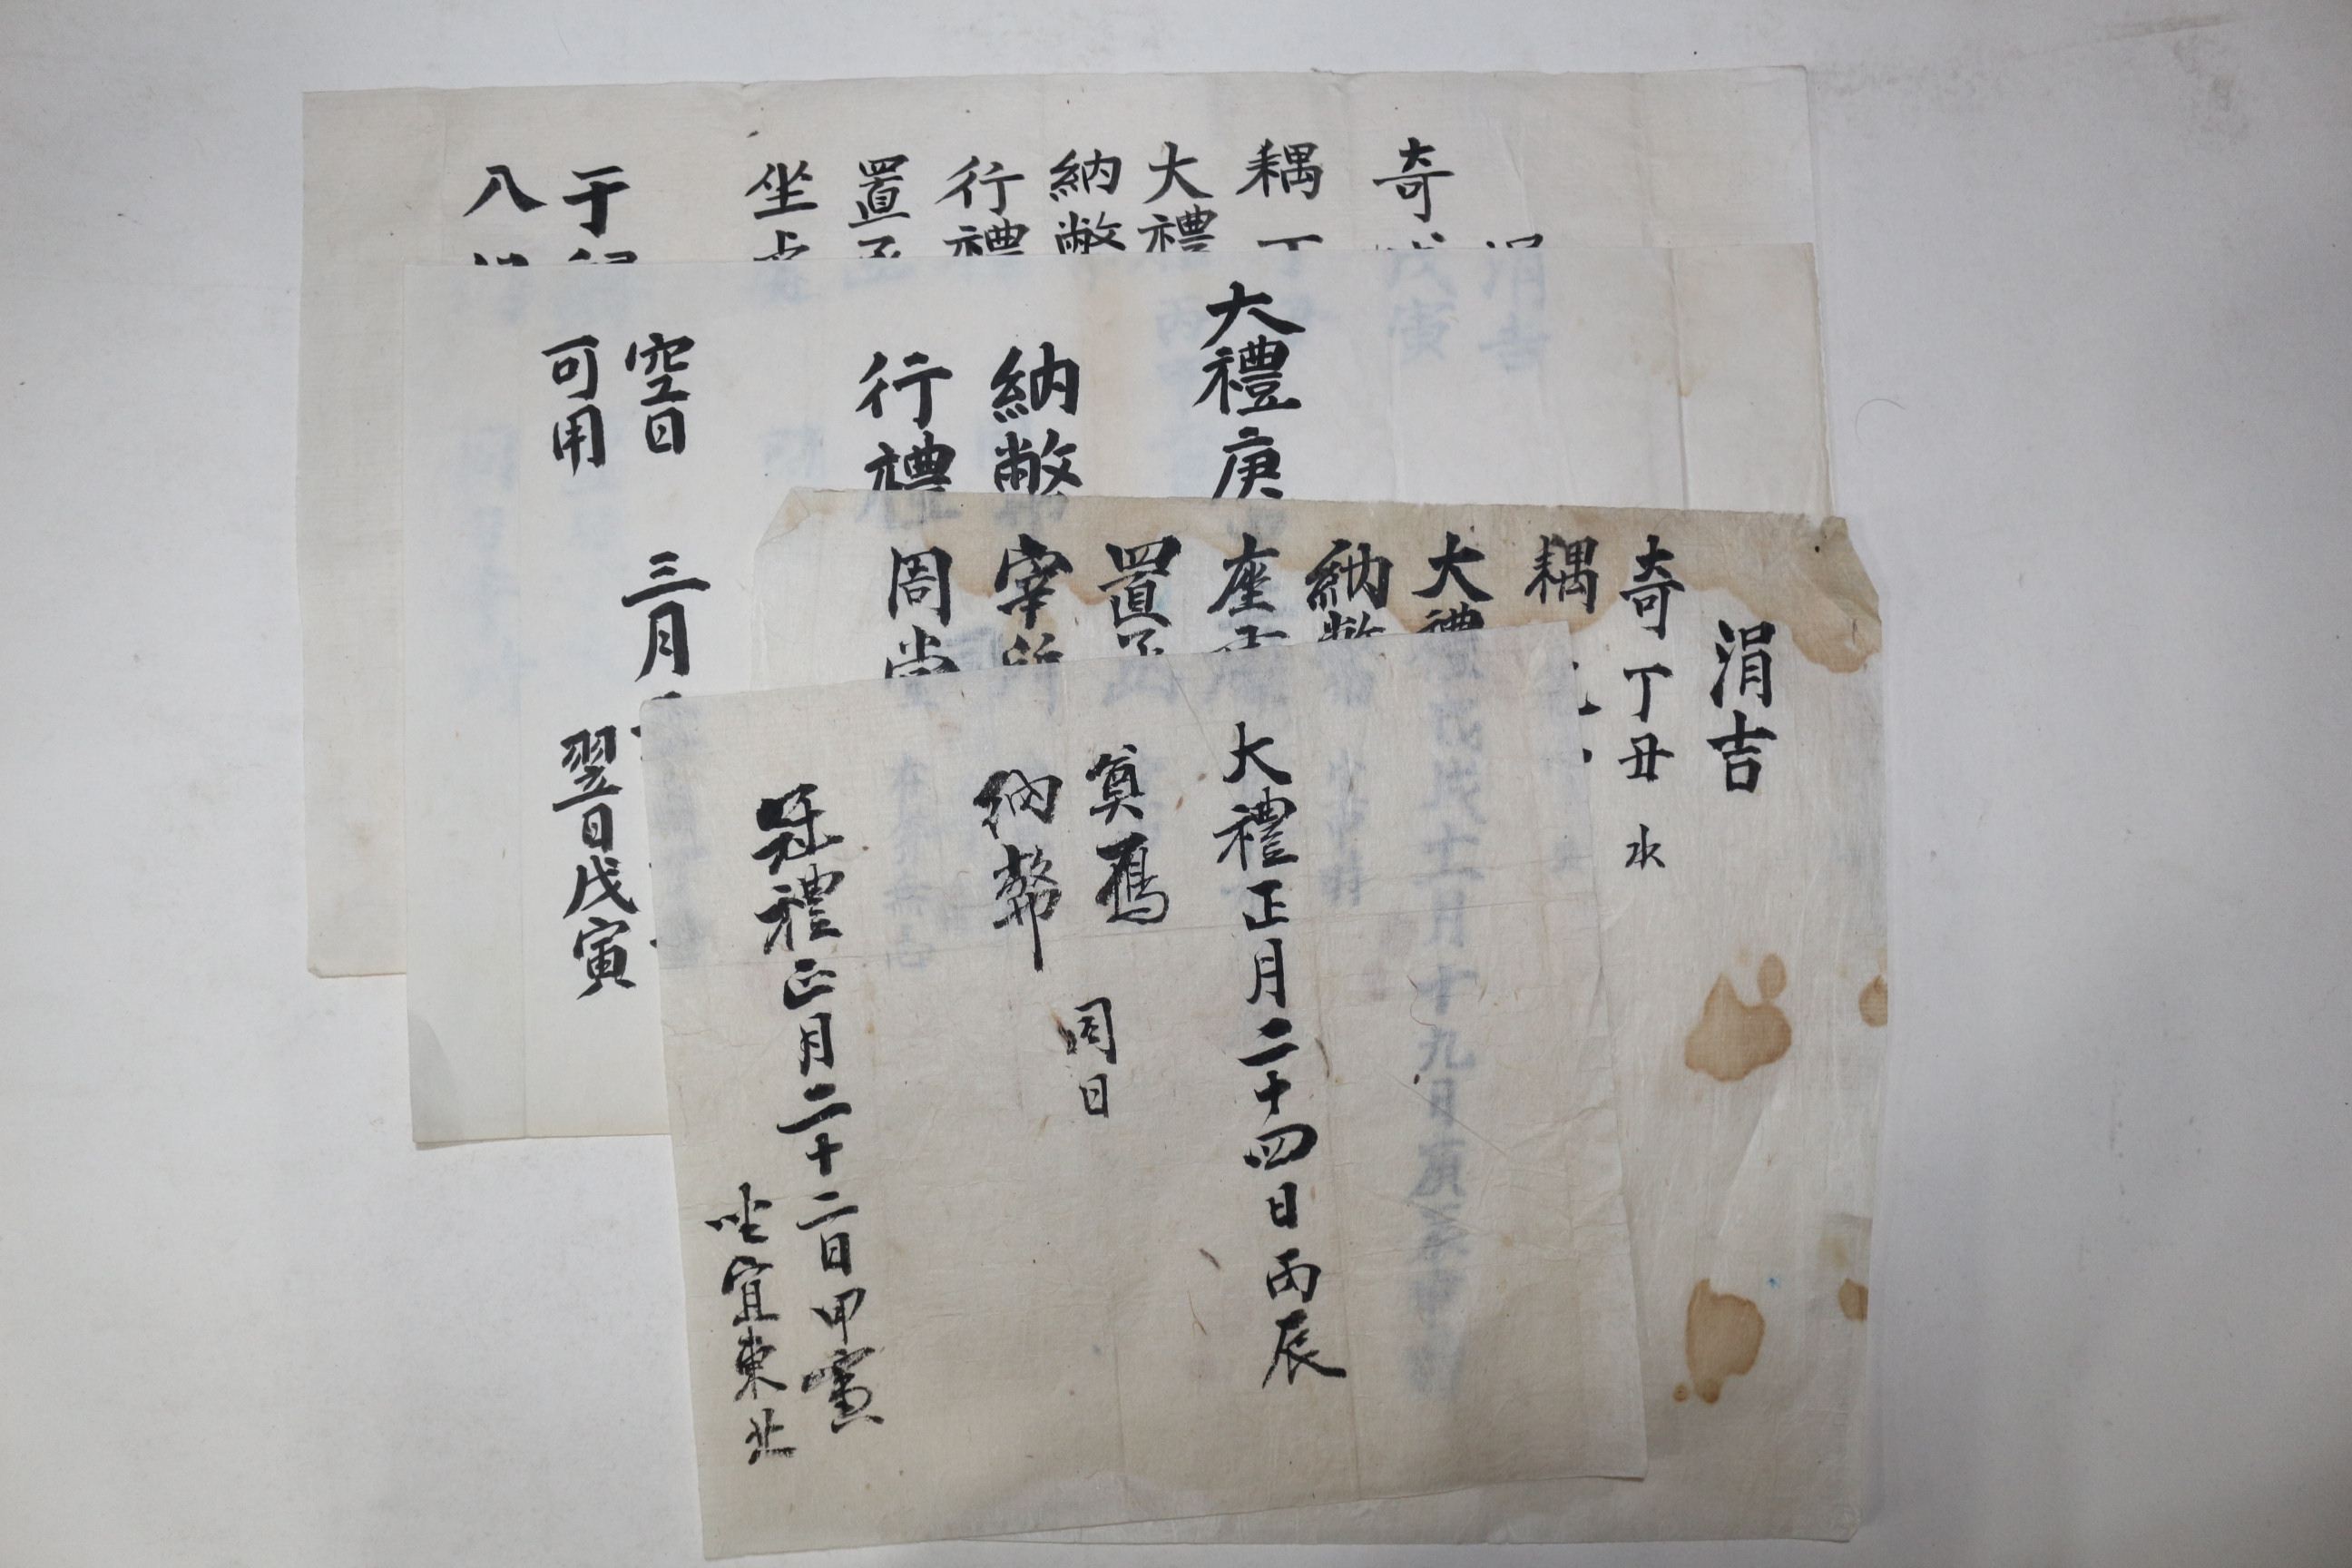 奇
耦
大禮
納幣
行禮
置
坐
于
八
大禮庚
納幣
行禮
空日 三月
可用 翌日戊寅
涓吉
奇 丁丑 水
耦
大禮
納幣
座
置
宰
周堂
大禮正月二十四日丙辰
奠鴈
納幣 同日
冠禮正月二十二日甲寅
坐宜東北